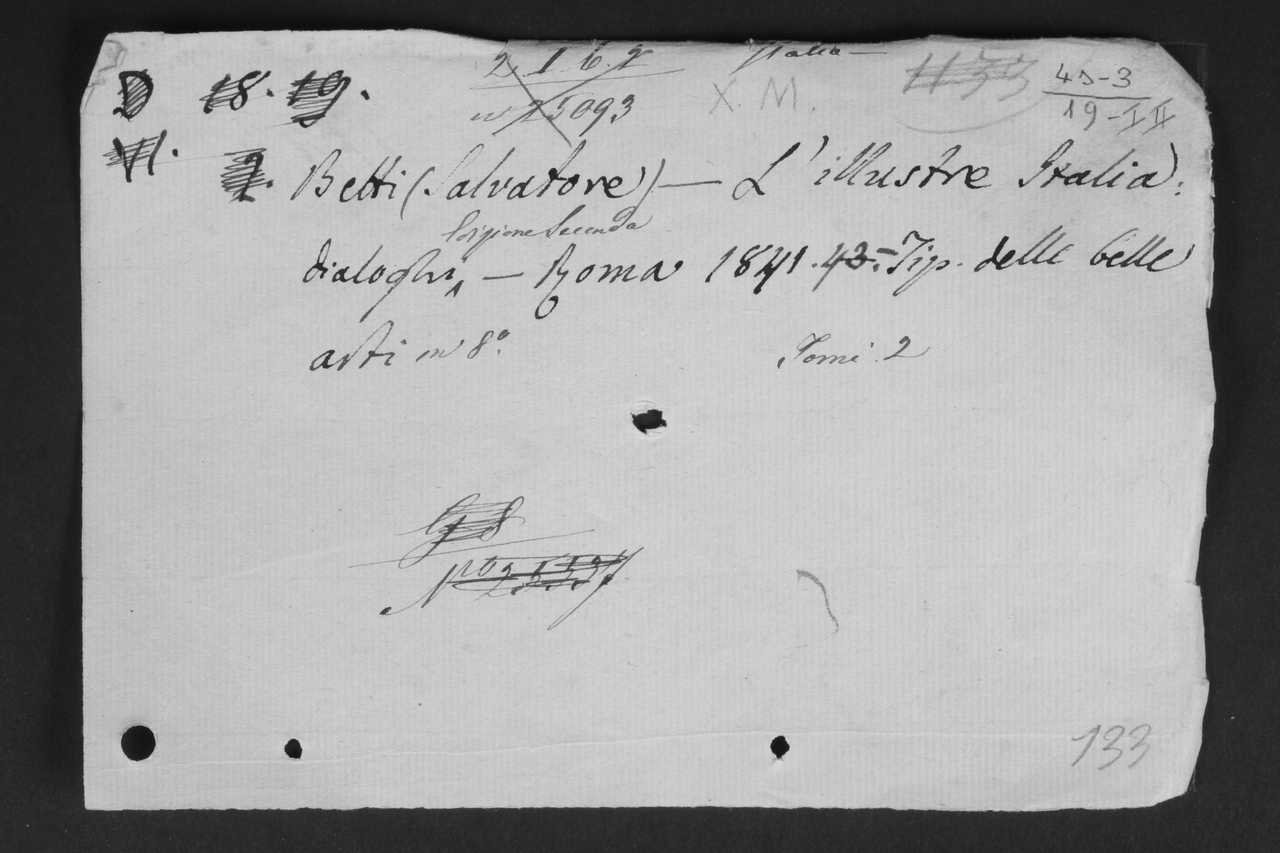 2. 1. 6. 2 Italia —
D 18. 19. X. M. 1133 43-3
n 25093 19-I II
VI.
2. Betti (Salvatore) — L'illustre Italia:
Edizione Seconda
dialoghi, — Roma 1841.43. — Tip. delle belle
arti in 8.º Tomi 2
G 8
133